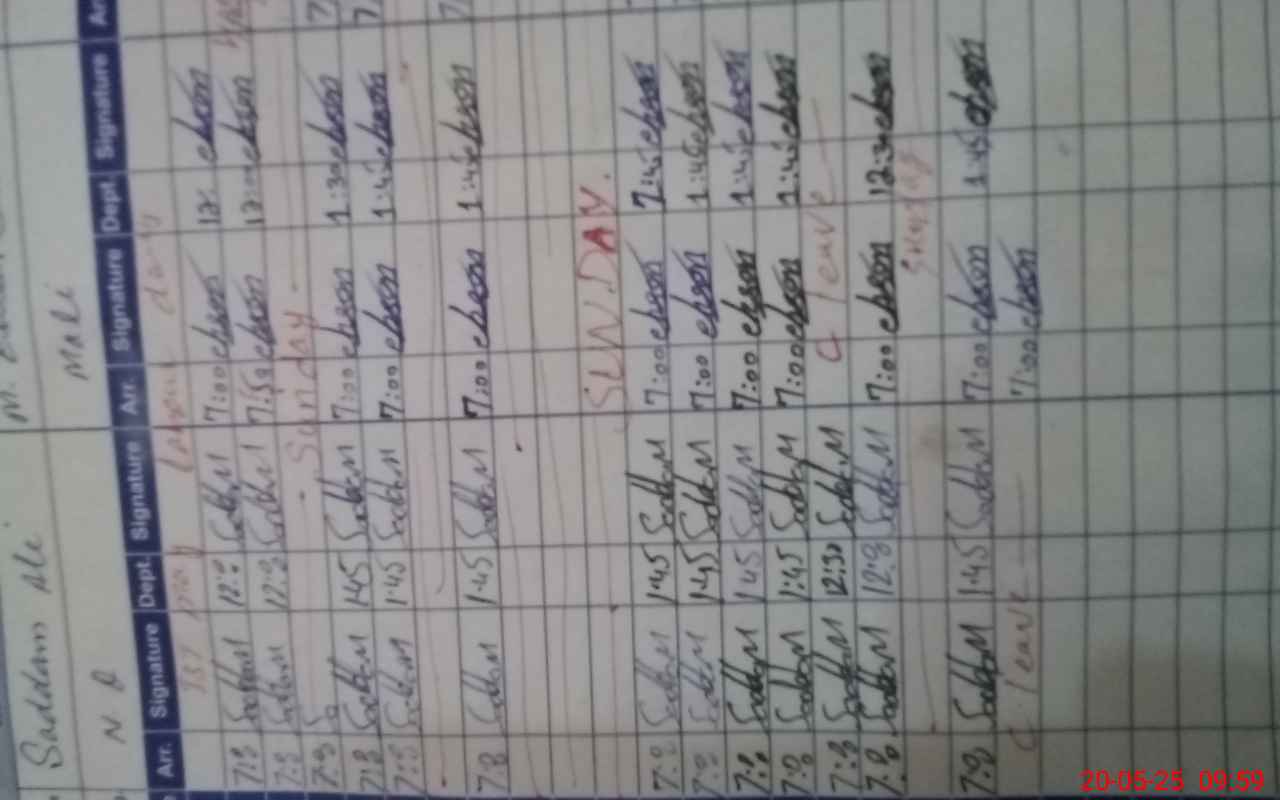 Saddam Ali
M.
N Q
Mali
Arr. Signature Dept. Signature Arr. Signature Dept. Signature Ar
1st may Labour day
7:0 Saddam 12:0 Saddam 7:00 ehson 12: ehson
7:0 Saddam 12:0 Saddam 7:50 ehson 12:00 ehson
7:0 Sa Sunday
7:0 Saddam 1:45 Saddam 7:00 ehson 1:30 ehson
7:0 Saddam 1:45 Saddam 7:00 ehson 1:45 ehson
7:0 Saddam 1:45 Saddam 7:00 ehson 1:45 ehson
SUNDAY.
7:0 Saddam 1:45 Saddam 7:00 ehson 1:45 ehson
7:0 Saddam 1:45 Saddam 7:00 ehson 1:45 ehson
7:0 Saddam 1:45 Saddam 7:00 ehson 1:45 ehson
7:0 Saddam 1:45 Saddam 7:00 ehson 1:45 ehson
7:0 Saddam 12:30 Saddam C leave
7:0 Saddam 12:0 Saddam 7:00 ehson 12:30 ehson
Sunday
7:0 Saddam 1:45 Saddam 7:00 ehson 1:45 ehson
C. leave 7:00 ehson
20-05-25 09:59